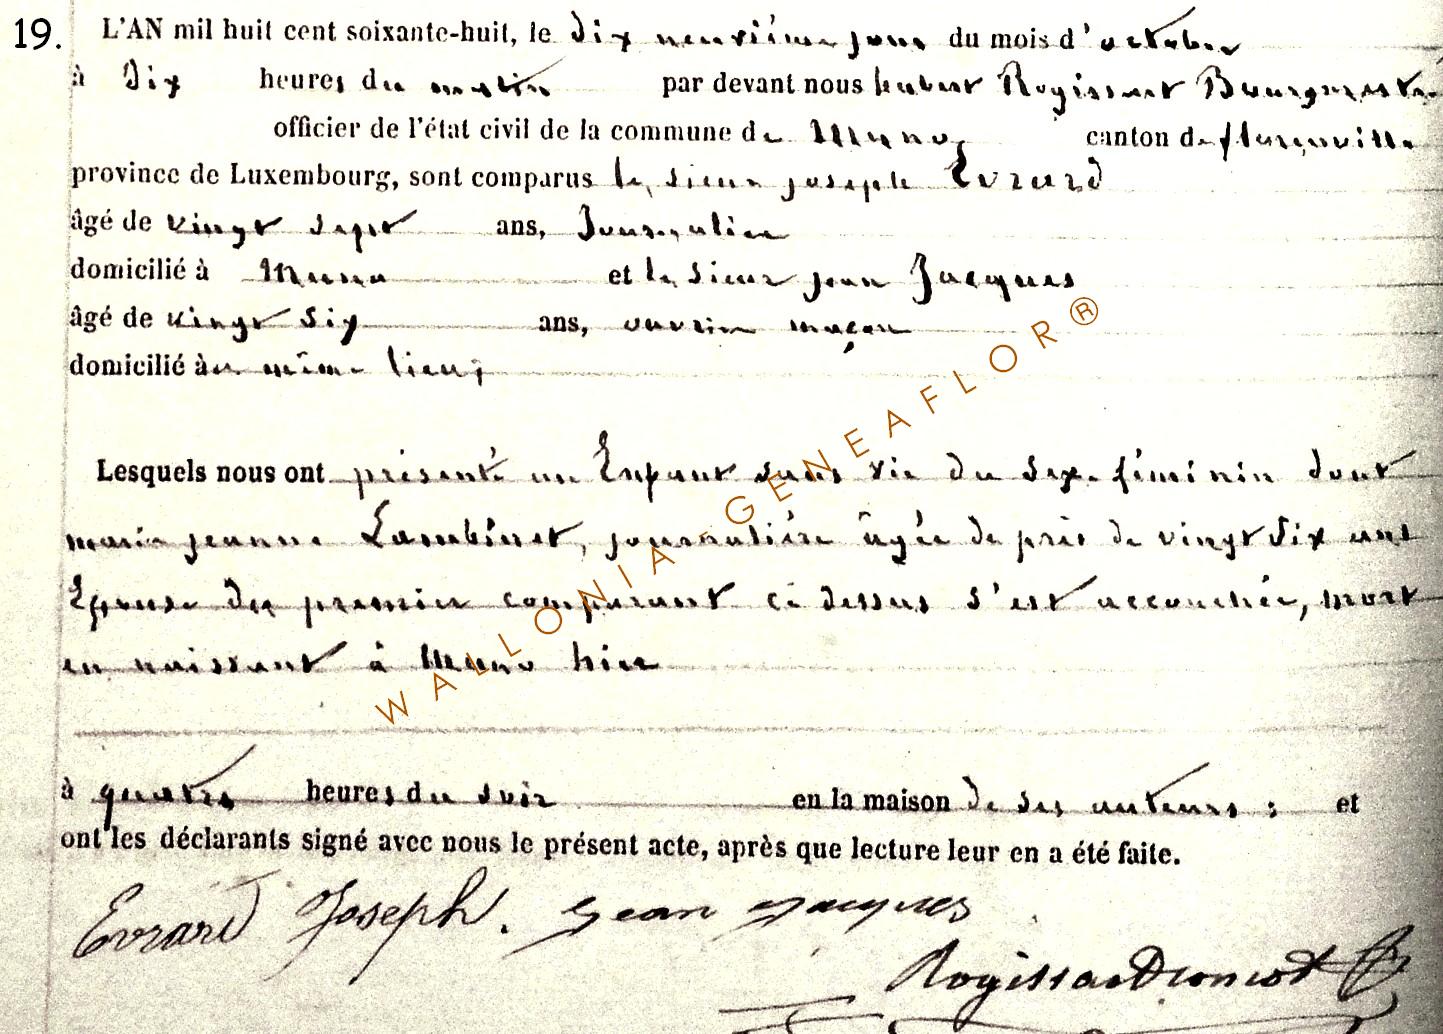 19. L'AN mil huit cent soixante-huit, le dix neuvième jour du mois d'octobre
à Dix heures du matin par devant nous hubert Rogissart Bourgmestre
officier de l'état civil de la commune de Muno, canton de florenville
province de Luxembourg, sont comparus le sieur joseph Evrard
âgé de vingt sept ans, Journalier
domicilié à Muno et le sieur jean Jacques
âgé de vingt six ans, ouvrier maçon
domicilié au même lieu;
Lesquels nous ont présenté un Enfant sans vie du sexe féminin dont
marie jeanne Lambinet, journalière âgée de près de vingt six ans
Epouse du premier comparant ci dessus s'est accouchée, mort
en naissant à Muno hier
à quatre heures du soir en la maison de ses auteurs ; et
ont les déclarants signé avec nous le présent acte, après que lecture leur en a été faite.
Evrard Joseph. Jean Jacques
Rogissart
WALLONIA-GENEAFLOR®